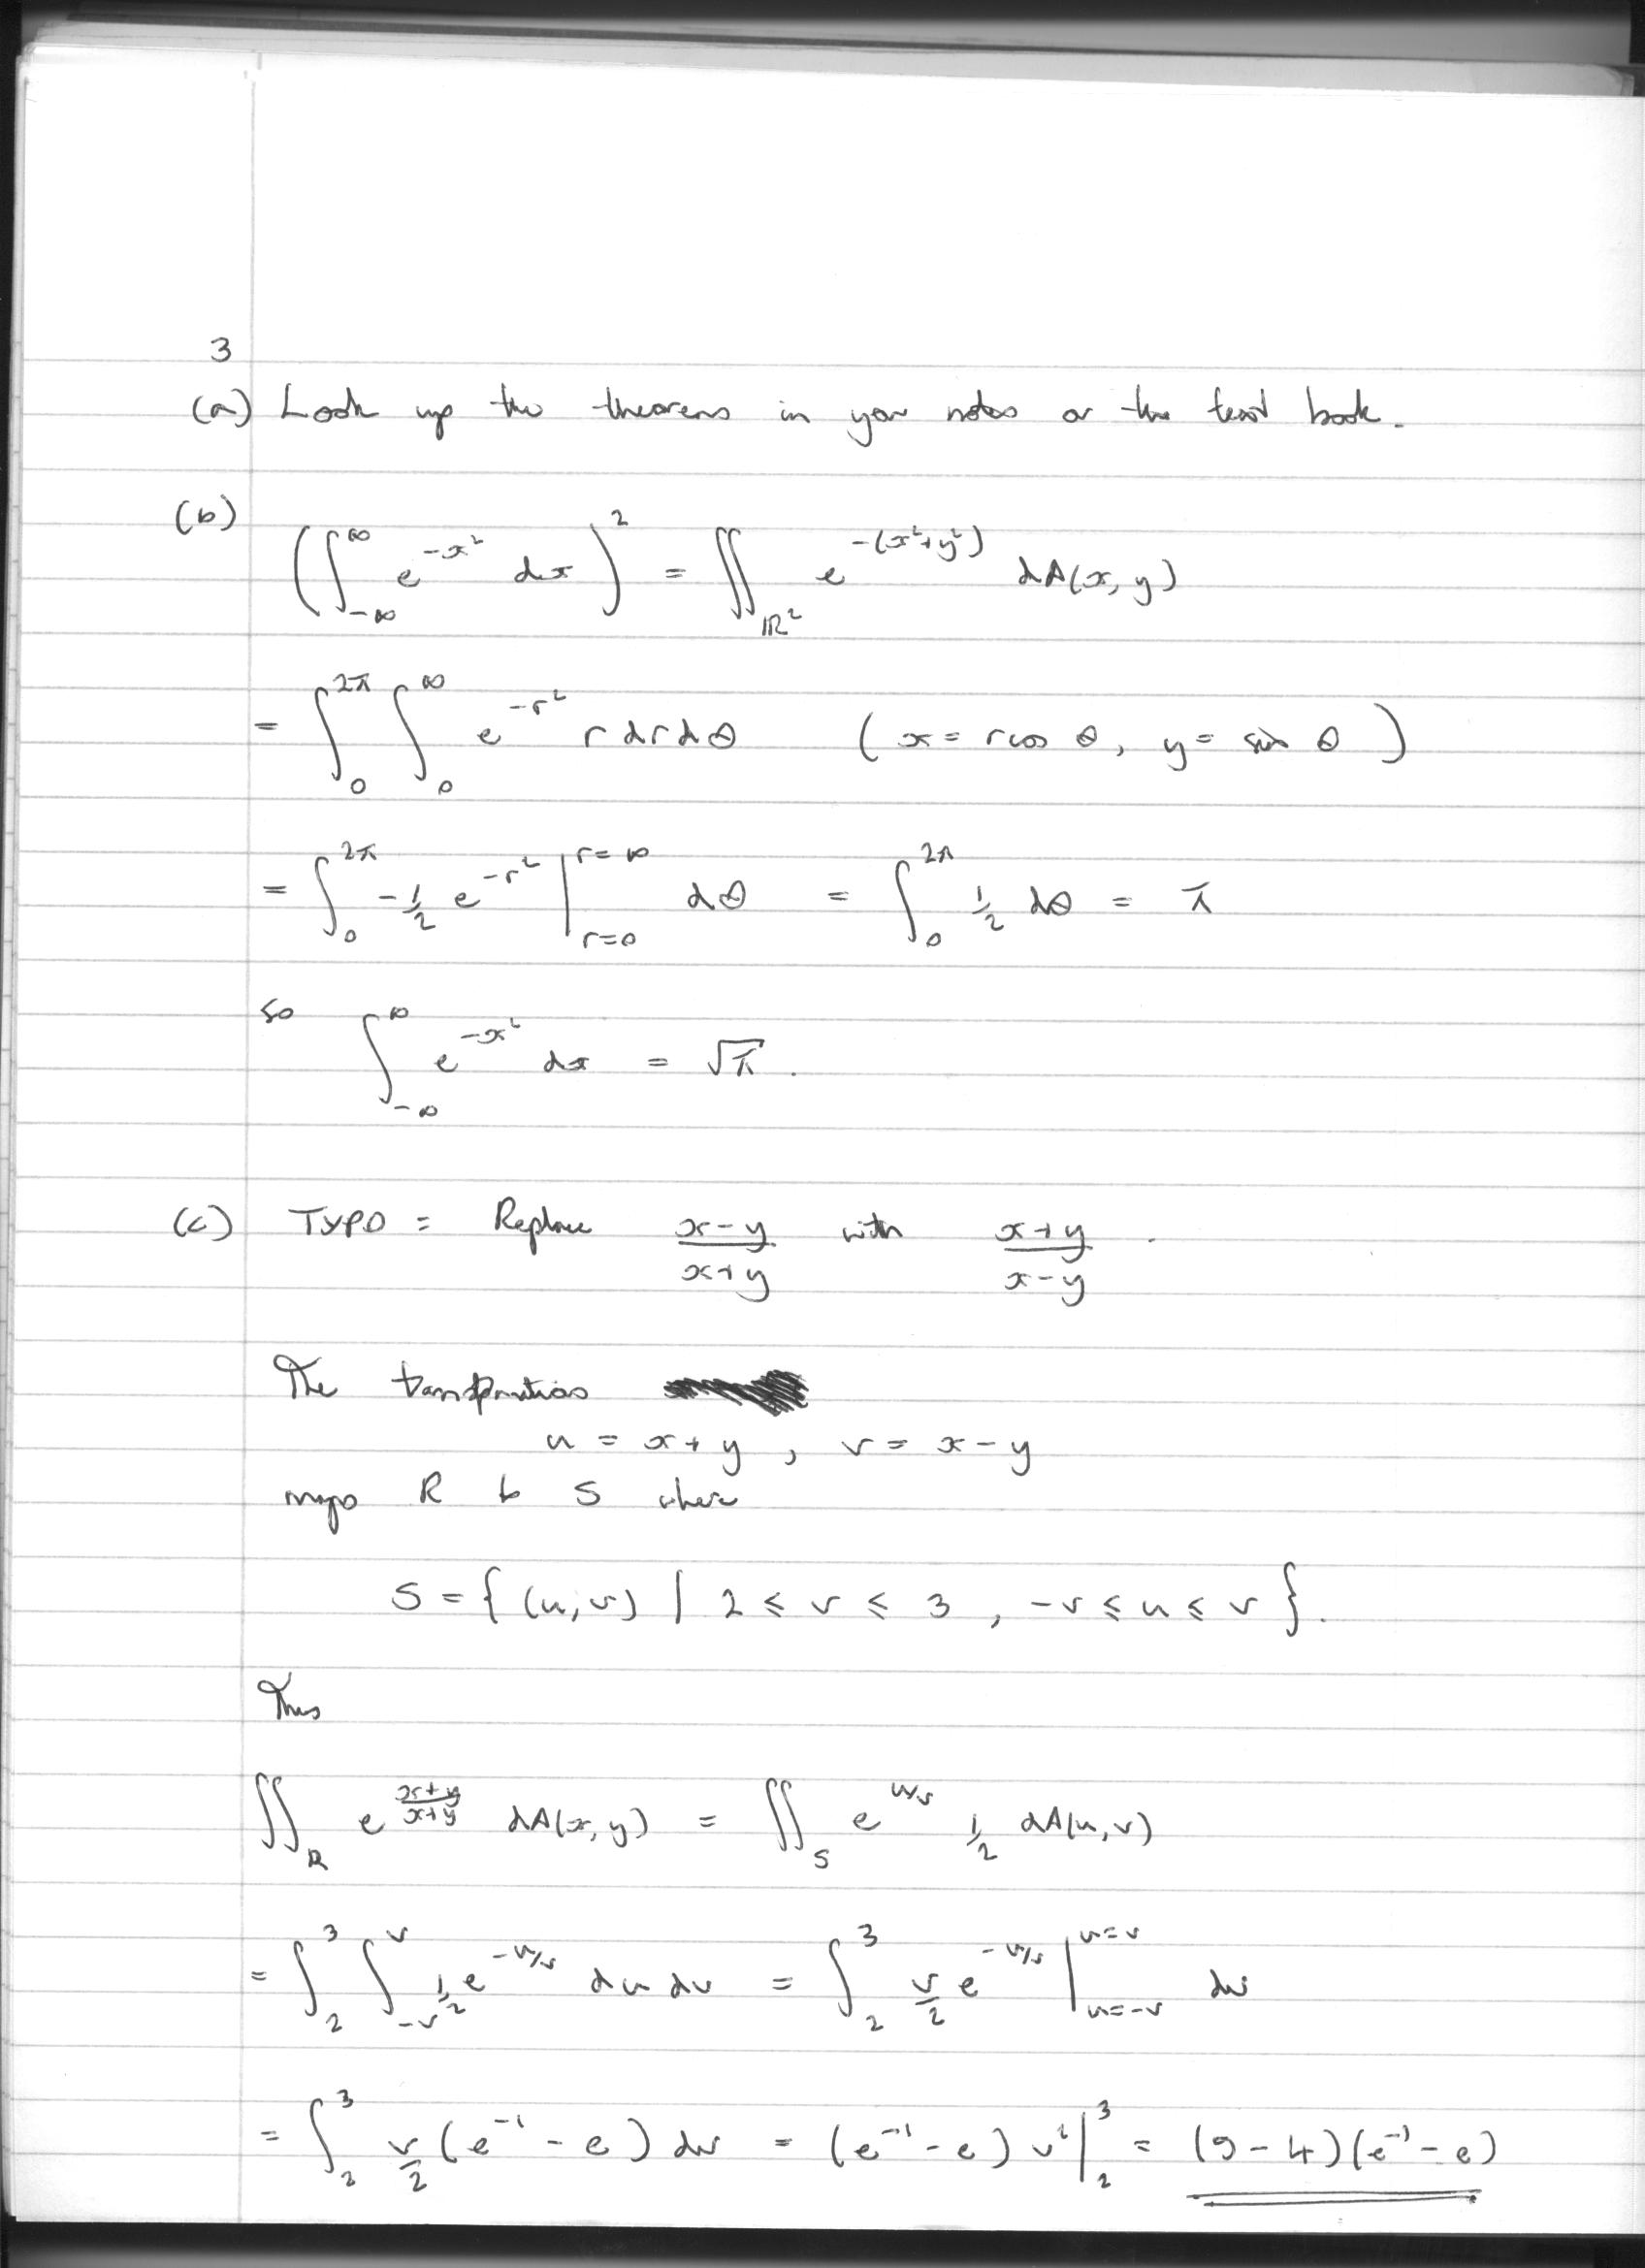 3
(a) Look up the theorems in your notes or the text book.
(b)
(∫_{-∞}^{∞} e^{-x²} dx)² = ∬_{ℝ²} e^{-(x²+y²)} dA(x, y)
= ∫_0^{2π} ∫_0^∞ e^{-r²} r dr dθ ( x = r cos θ, y = sin θ )
= ∫_0^{2π} -½ e^{-r²} |_{r=0}^{r=∞} dθ = ∫_0^{2π} ½ dθ = π
so ∫_{-∞}^{∞} e^{-x²} dx = √π .
(c) TYPO : Replace (x-y)/(x+y) with (x+y)/(x-y) .
The transformation
u = x+y , v = x-y
maps R to S where
S = { (u,v) | 2 ≤ v ≤ 3 , -v ≤ u ≤ v }.
Thus
∬_R e^{(x+y)/(x+y)} dA(x, y) = ∬_S e^{u/v} ½ dA(u, v)
= ∫_2^3 ∫_{-v}^v ½ e^{-u/v} du dv = ∫_2^3 v/2 e^{-u/v} |_{u=-v}^{u=v} dv
= ∫_2^3 v/2 (e^{-1} - e) dv = (e^{-1} - e) v² |_2^3 = (9-4)(e^{-1} - e)